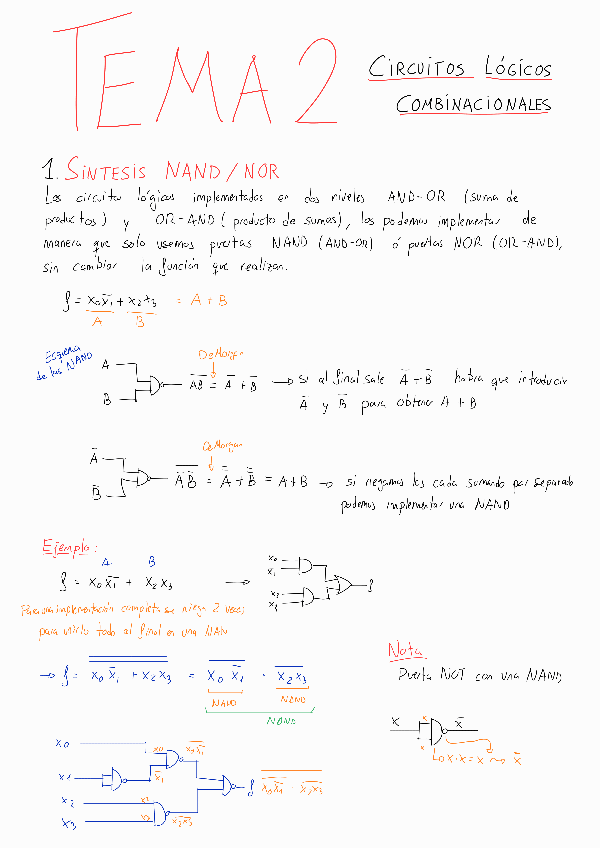 TEMA 2
CIRCUITOS LÓGICOS
COMBINACIONALES
1. SÍNTESIS NAND/NOR
Los circuitos lógicos implementados en dos niveles AND-OR (suma de
productos) y OR-AND (producto de sumas), los podemos implementar de
manera que solo usemos puertas NAND (AND-OR) ó puertas NOR (OR-AND),
sin cambiar la función que realizan.
f = x₀x̄₁ + x₂x₃ = A + B
A B
Esquema
de las NAND
DeMorgan
A
B
A̅B̅ = Ā + B̄ → si al final sale Ā + B̄ habrá que introducir
Ā y B̄ para obtener A + B
DeMorgan
Ā
B̄
Ā B̄ = A̿ + B̿ = A+B → si negamos los cada sumando por separado
podemos implementar una NAND
Ejemplo:
A B
f = x₀x̄₁ + x₂x₃ →
x₀
x₁
x₂
x₃
f
Para una implementación completa se niega 2 veces
para unirlo todo al final en una NAN
→ f = x₀ x̄₁ + x₂x₃ = x₀ x̄₁ · x₂x₃
NAND NAND
NAND
Nota
Puerta NOT con una NAND
x x x̄
x
x·x = x → x̄
x₀ x₀ x₀x̄₁
x₁ x̄₁
f x₀x̄₁ · x₂x₃
x₂ x₂
x₃ x₃ x₂x₃